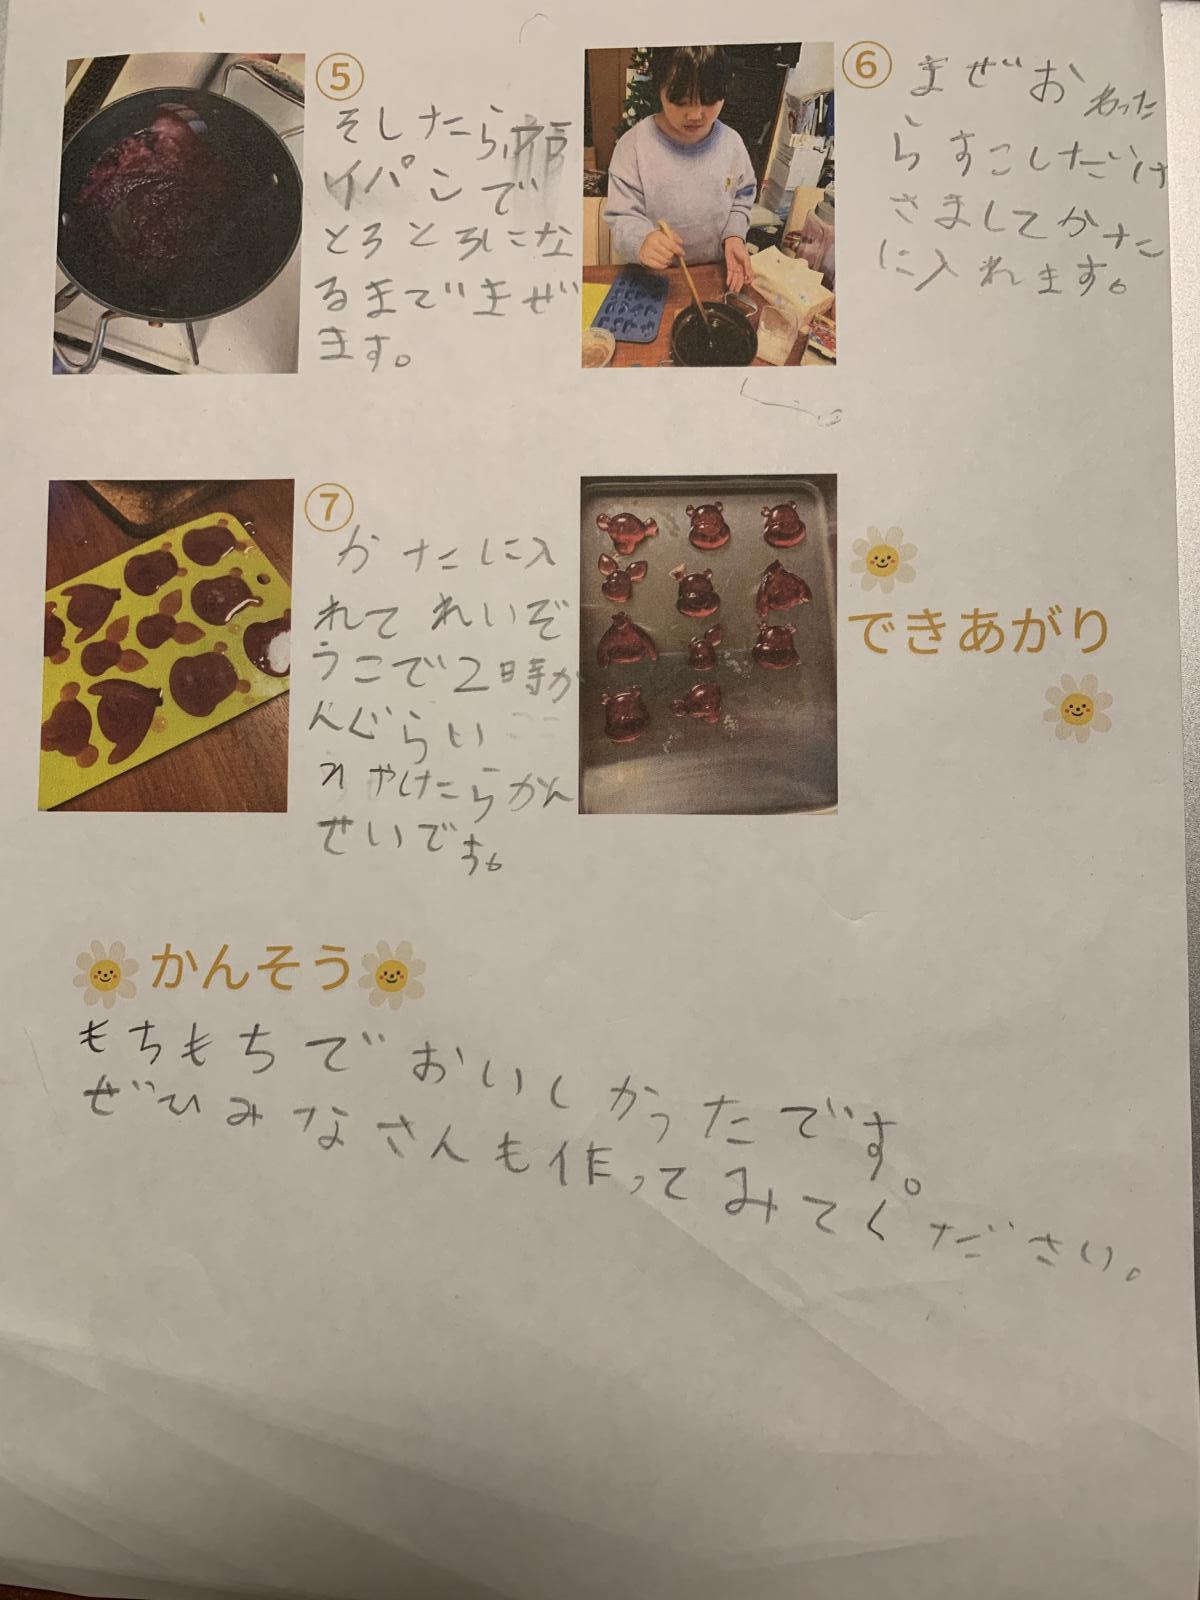 ⑤
そしたら
イパンで
とろとろにな
るまでまぜ
ます。
⑥
まぜおわった
らすこしだけ
さましてかた
に入れます。
⑦
かたに入
れてれいぞ
うこで2時か
んぐらい
ひやけたらかん
せいです。
できあがり
かんそう
もちもちでおいしかったです。
ぜひみなさんも作ってみてください。